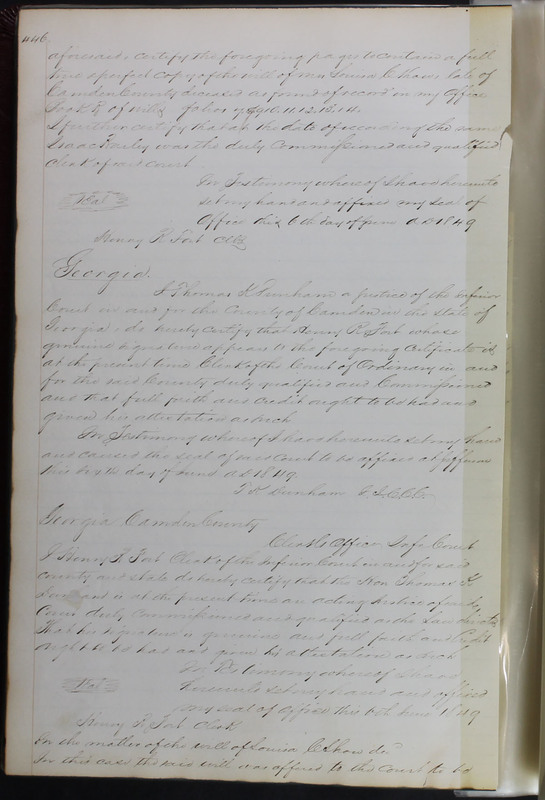 446
aforesaid, certify the foregoing pages to contain a full
true & perfect copy of the will of Mrs Louisa C Shaw, late of
Camden County deceased as found of record in my Office
Book of Wills folios 9, 10. 11. 12. 13. 14.
I further certify that at the date of recording the same
Isaac Bailey was the duly Commissioned and qualified
clerk of said Court.
In Testimony whereof I have hereunto
set my hand and affixed my seal of
Office this 6th day of June AD 1849
Seal
Henry R Fort
Georgia.
I Thomas K Dunham a justice of the Inferior
Court in and for the County of Camden in the State of
Georgia, do hereby certify that Henry R. Fort whose
genuine signature appears to the foregoing Certificate is,
at the present time Clerk of the Court of Ordinary in and
for the said County duly qualified and Commissioned
and that full faith and credit ought to be had and
given his attestation as such.
In Testimony whereof I have hereunto set my hand
and caused the seal of said Court to be affixed at Jefferson
this sixth day of June AD 1849.
T K Dunham
Georgia Camden County
Clerk's Office Court
I Henry R Fort Clerk of the Inferior Court in and for said
county and state do hereby certify that the Hon Thomas K.
Dunham is at the present time an acting Justice of
Court duly Commissioned and qualified as the law
That his signature is genuine and full faith and Credit
ought to be had and given his attestation as such
In Testimony whereof I have
hereunto set my hand and affixed
my seal of Office this 6th June 1849
Seal
Henry R. Fort Clerk
In the matter of the will of Louisa C Shaw
In this case the said will was offered to the Court to be